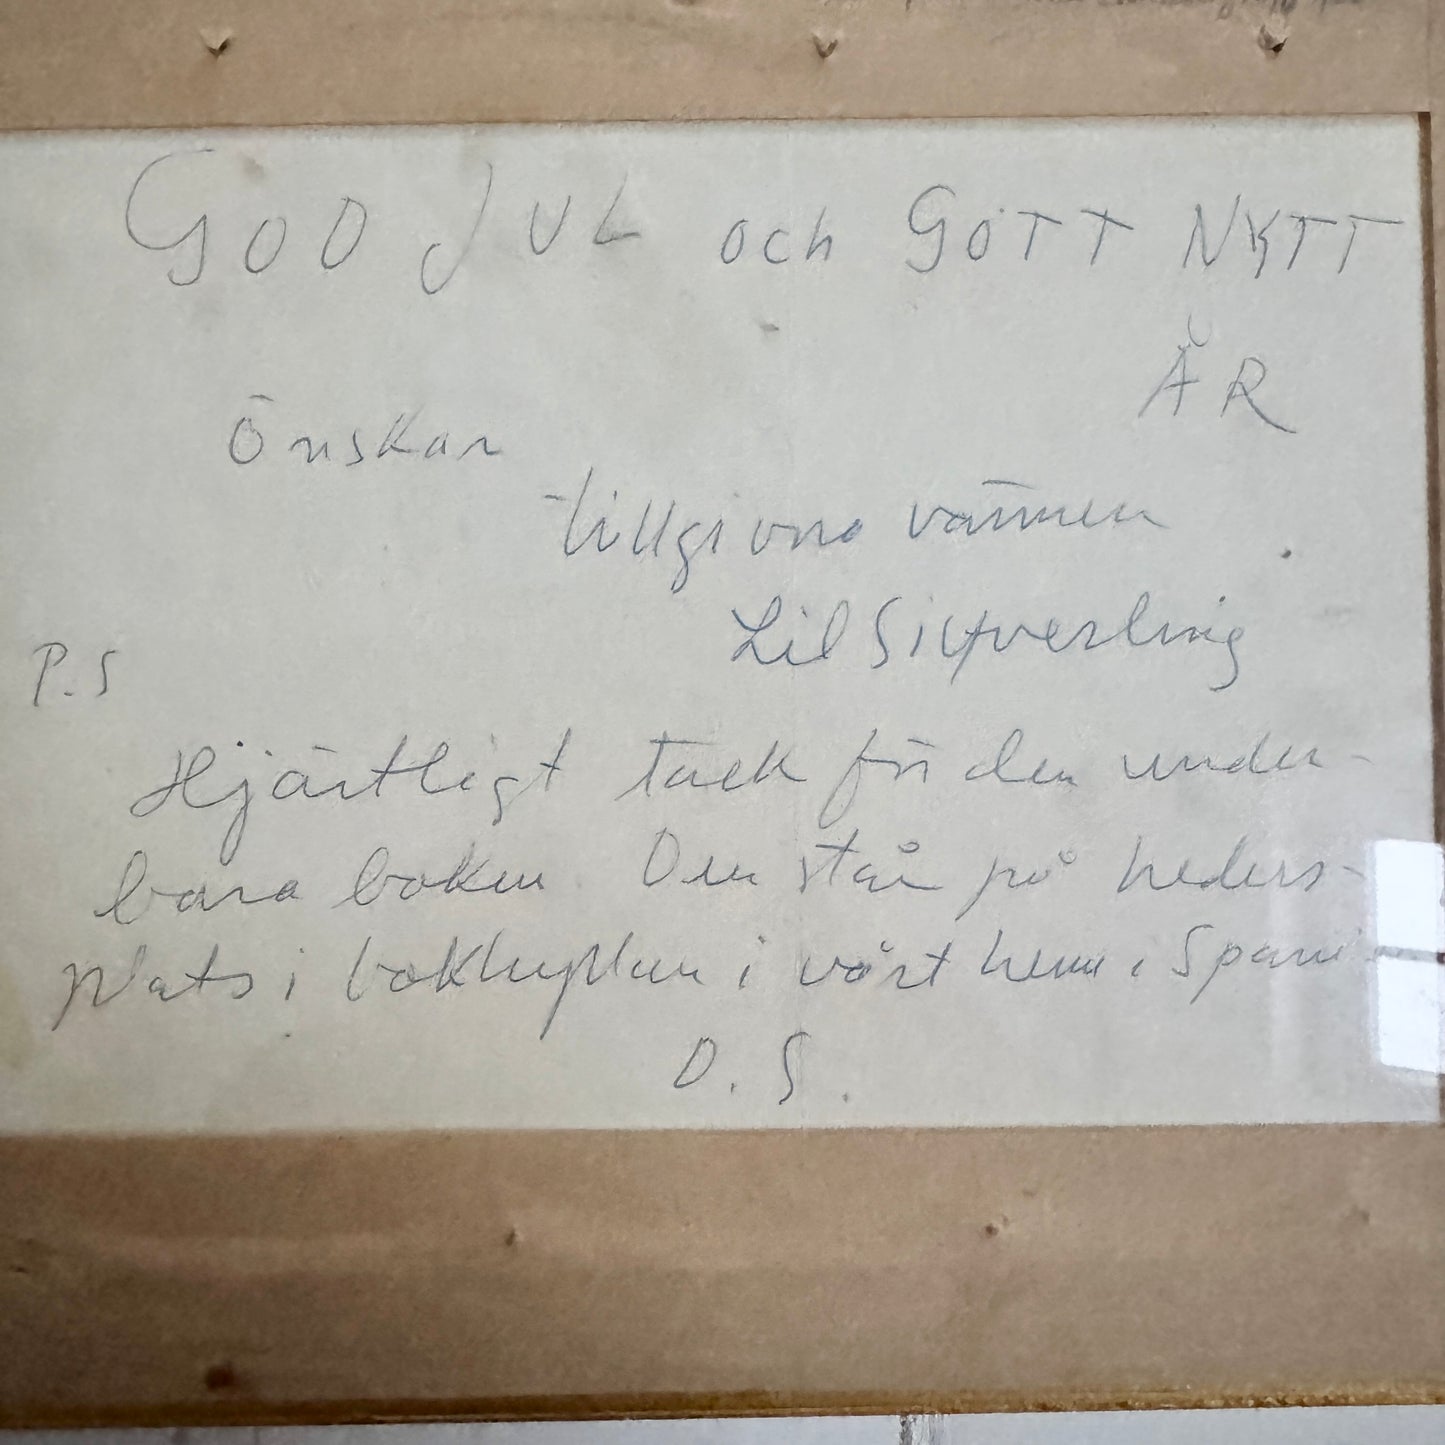 GOD JUL och GOTT NYTT
ÅR
Önskar
tillgivna vännen
Lil Silfverling
P.S
Hjärtligt tack för den under-
bara boken. Den står på heders-
plats i bokhyllan i vårt hem i
D.S.